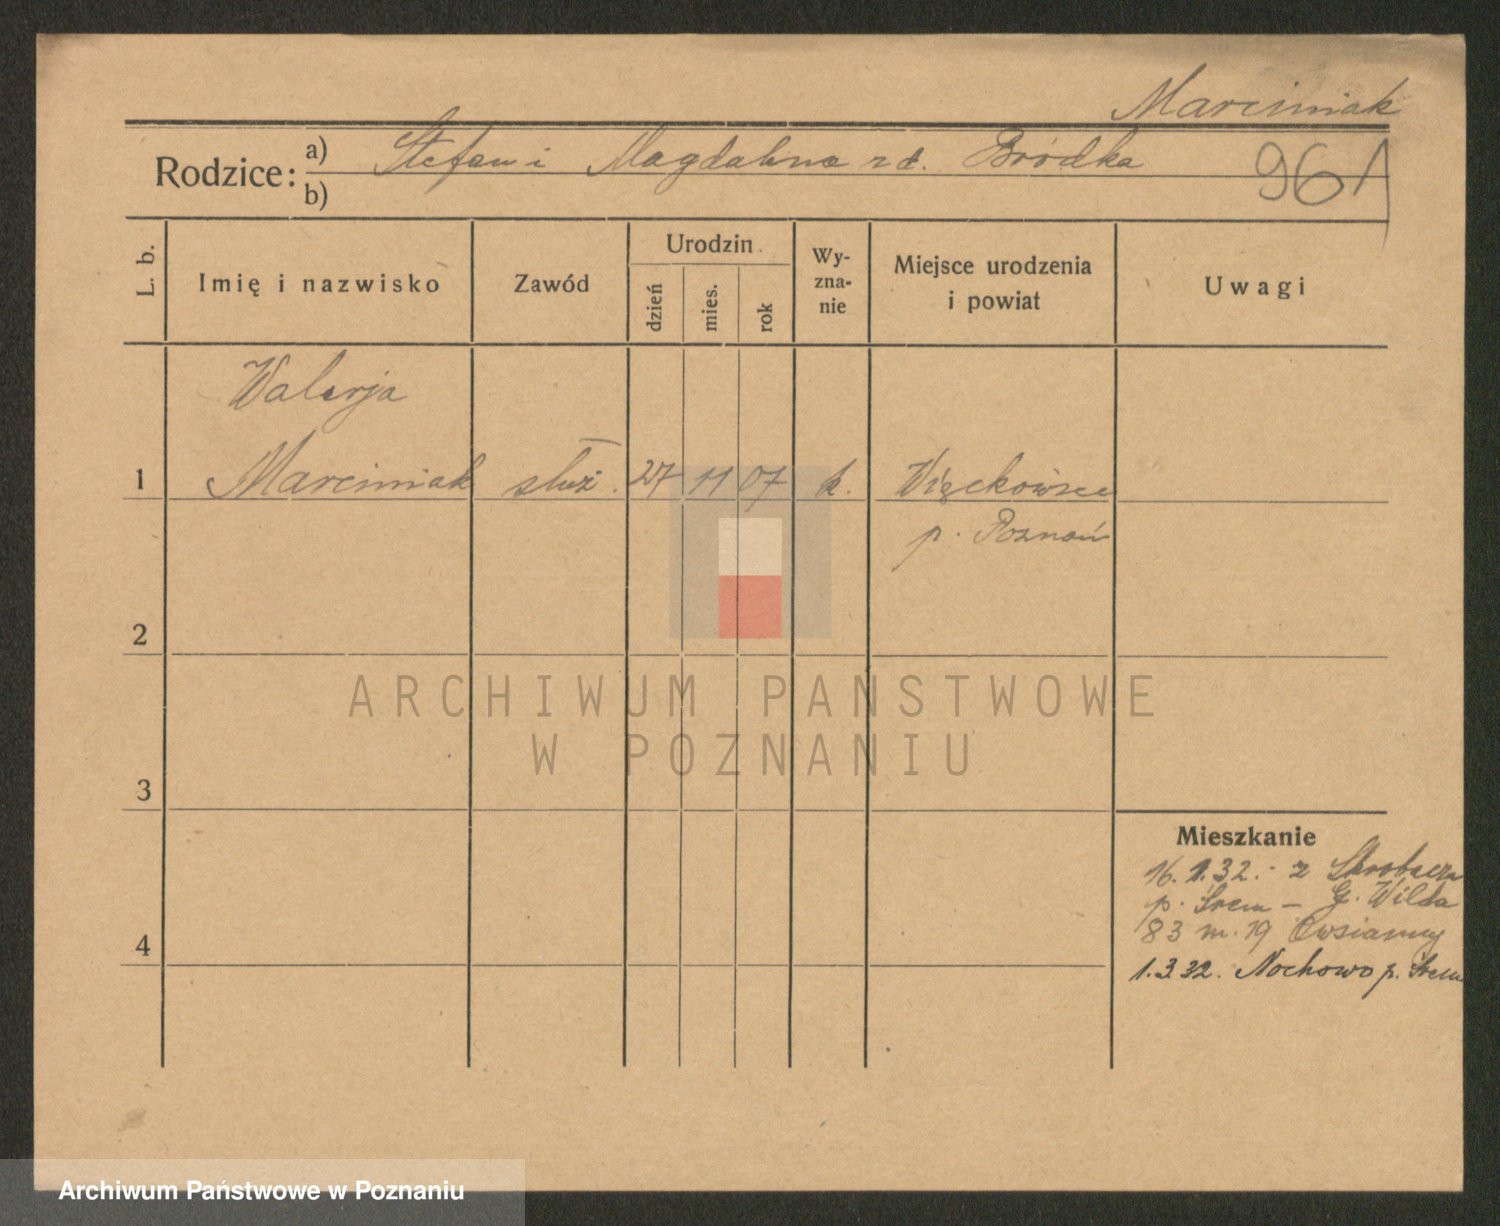 Marciniak
Rodzice: a) Stefan i Magdalena z d. Bródka
b)
961
L. b.
Imię i nazwisko
Zawód
Urodzin
dzień
mies.
rok
Wy-
zna-
nie
Miejsce urodzenia
i powiat
Uwagi
Walerja
1 Marciniak służ. 27 11 07 k. Więckowice
p. Poznań
2
3
4
ARCHIWUM PAŃSTWOWE
W POZNANIU
Mieszkanie
16.1.32. - z
p. Śrem - G. Wilda
83 m. 19 Owsianny
1.3.32. Nochowo p. Śrem
Archiwum Państwowe w Poznaniu